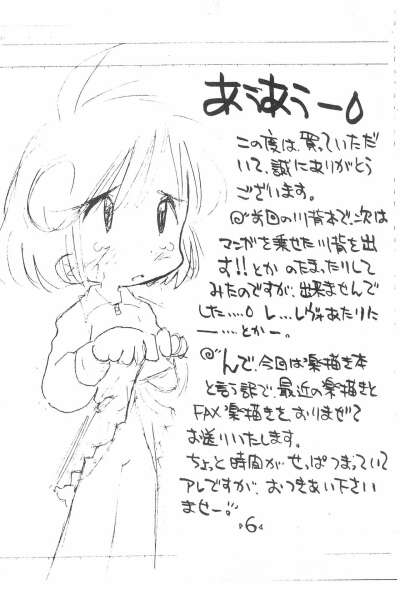 あうあうー。
この度は、買っていただ
いて、誠にありがとう
ございます。
前回の川背本で、次は
マンガを乗せた川背を出
す!!とか のたまったりして
みたのですが、出来ませんで
した……。 レ…レヴォあたりに
ー……とかー。
んで、今回は楽描き本
と言う訳で、最近の楽描きと
FAX楽描きをおりまぜて
お送りいたします。
ちょっと時間がせっぱつまっていて
アレですが、おつきあい下さい
ませー。
6